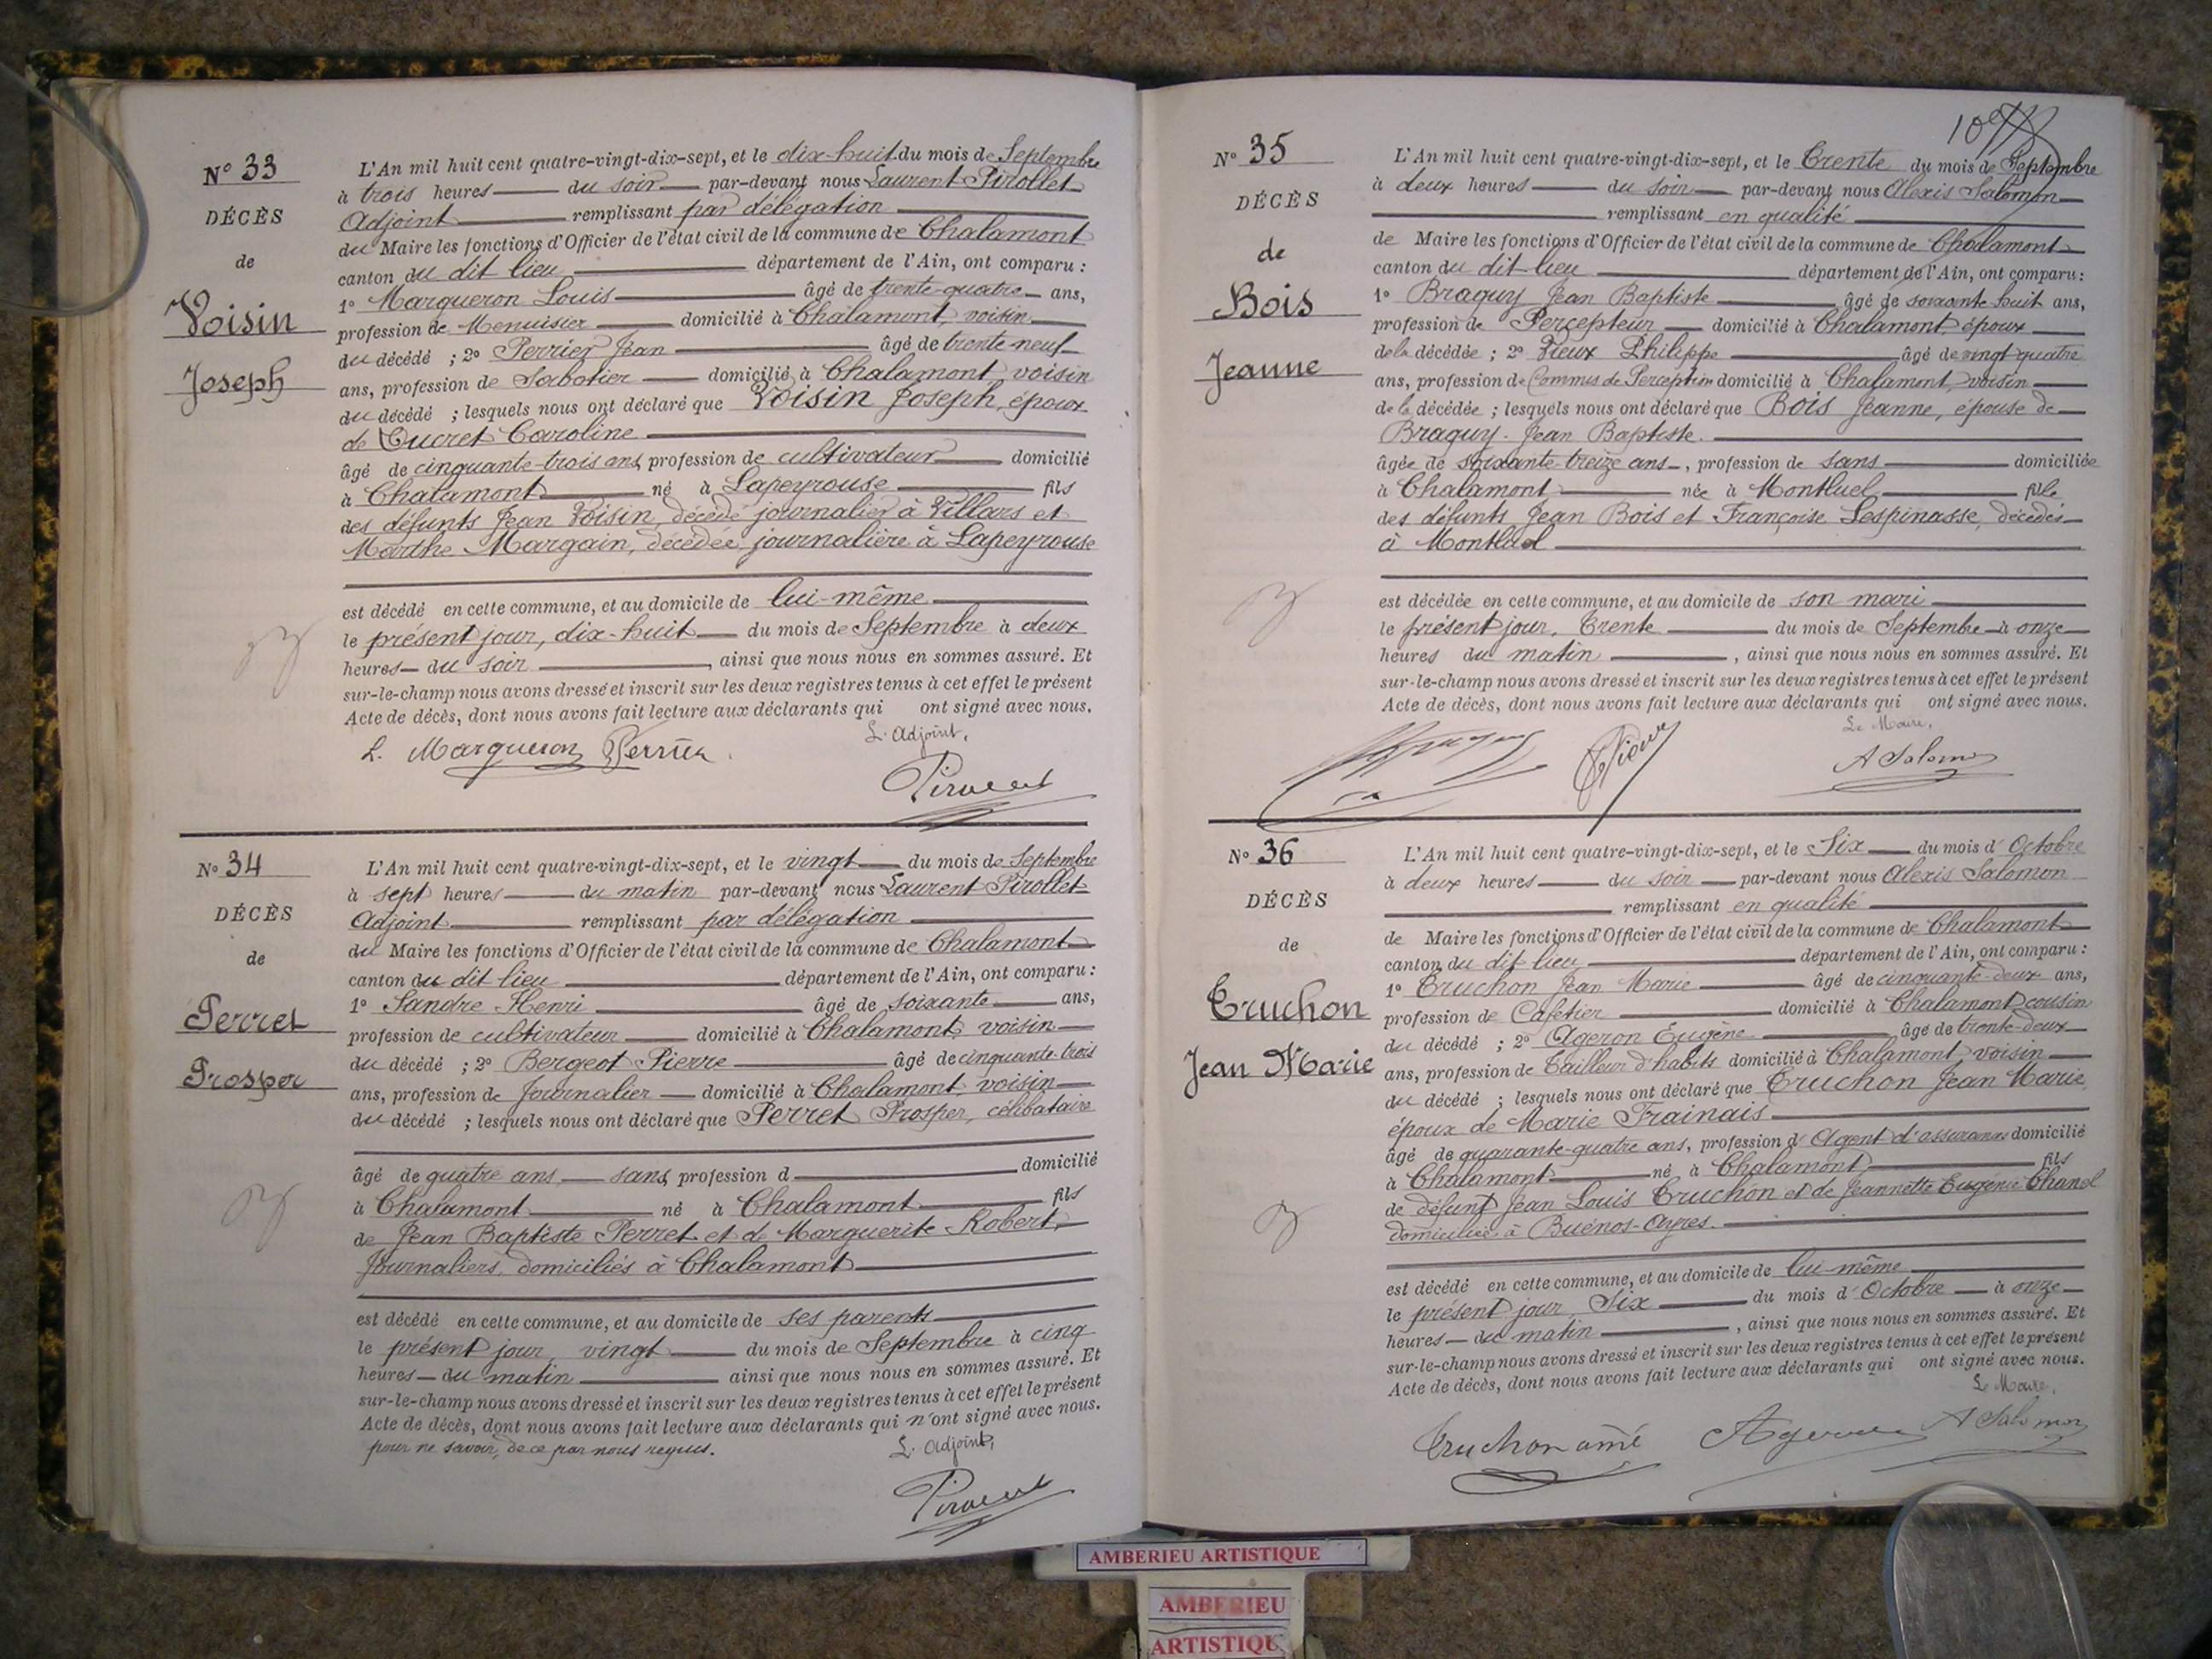 N° 33
DÉCÈS
de
Voisin
Joseph
L'An mil huit cent quatre-vingt-dix-sept, et le dix-huit du mois de Septembre
à trois heures du soir par-devant nous Laurent Pirollet
Adjoint remplissant par délégation
du Maire les fonctions d'Officier de l'état civil de la commune de Chalamont
canton du dit lieu département de l'Ain, ont comparu :
1° Margueron Louis âgé de trente-quatre ans,
profession de Menuisier domicilié à Chalamont, voisin
du décédé ; 2° Perrier Jean âgé de trente neuf
ans, profession de Sabotier domicilié à Chalamont voisin
du décédé ; lesquels nous ont déclaré que Voisin Joseph, époux
de Ducret Caroline
âgé de cinquante-trois ans, profession de cultivateur domicilié
à Chalamont né à Lapeyrouse fils
des défunts Jean Voisin, décédé journalier à Villars et
Marthe Margain, décédée journalière à Lapeyrouse
est décédé en cette commune, et au domicile de lui-même
le présent jour, dix-huit du mois de Septembre à deux
heures du soir, ainsi que nous nous en sommes assuré. Et
sur-le-champ nous avons dressé et inscrit sur les deux registres tenus à cet effet le présent
Acte de décès, dont nous avons fait lecture aux déclarants qui ont signé avec nous.
L'Adjoint,
L. Margueron Perrier
N° 34
DÉCÈS
de
Perret
Prosper
L'An mil huit cent quatre-vingt-dix-sept, et le vingt du mois de Septembre
à sept heures du matin par-devant nous Laurent Pirollet
Adjoint remplissant par délégation
du Maire les fonctions d'Officier de l'état civil de la commune de Chalamont
canton du dit lieu département de l'Ain, ont comparu :
1° Sandre Henri âgé de soixante ans,
profession de cultivateur domicilié à Chalamont, voisin
du décédé ; 2° Bergeot Pierre âgé de cinquante-trois
ans, profession de Journalier domicilié à Chalamont, voisin
du décédé ; lesquels nous ont déclaré que Perret Prosper, célibataire
âgé de quatre ans, sans profession d domicilié
à Chalamont né à Chalamont fils
de Jean Baptiste Perret et de Marguerite Robert,
Journaliers, domiciliés à Chalamont
est décédé en cette commune, et au domicile de ses parents
le présent jour, vingt du mois de Septembre à cinq
heures du matin ainsi que nous nous en sommes assuré. Et
sur-le-champ nous avons dressé et inscrit sur les deux registres tenus à cet effet le présent
Acte de décès, dont nous avons fait lecture aux déclarants qui n'ont signé avec nous.
pour ne savoir, de ce par nous requis.
L'Adjoint,
N° 35
DÉCÈS
de
Bois
Jeanne
L'An mil huit cent quatre-vingt-dix-sept, et le Trente du mois de Septembre
à deux heures du soir par-devant nous Alexis Salomon
remplissant en qualité
de Maire les fonctions d'Officier de l'état civil de la commune de Chalamont
canton du dit lieu département de l'Ain, ont comparu :
1° Braguy Jean Baptiste âgé de soixante huit ans,
profession de Percepteur domicilié à Chalamont, époux
de la décédée ; 2° Vieux Philippe âgé de vingt quatre
ans, profession de Commis de Perception domicilié à Chalamont, voisin
de la décédée ; lesquels nous ont déclaré que Bois Jeanne, épouse de
Braguy Jean Baptiste.
âgée de soixante-treize ans, profession de sans domiciliée
à Chalamont née à Montluel fille
des défunts Jean Bois et Françoise Lespinasse, décédés
à Montluel
est décédée en cette commune, et au domicile de son mari
le présent jour, Trente du mois de Septembre à onze
heures du matin, ainsi que nous nous en sommes assuré. Et
sur-le-champ nous avons dressé et inscrit sur les deux registres tenus à cet effet le présent
Acte de décès, dont nous avons fait lecture aux déclarants qui ont signé avec nous.
Le Maire,
A Salomon
N° 36
DÉCÈS
de
Truchon
Jean Marie
L'An mil huit cent quatre-vingt-dix-sept, et le Six du mois d'Octobre
à deux heures du soir par-devant nous Alexis Salomon
remplissant en qualité
de Maire les fonctions d'Officier de l'état civil de la commune de Chalamont
canton du dit lieu département de l'Ain, ont comparu :
1° Truchon Jean Marie âgé de cinquante-deux ans,
profession de Cafetier domicilié à Chalamont, cousin
du décédé ; 2° Ageron Eugène âgé de trente-deux
ans, profession de Tailleur d'habits domicilié à Chalamont, voisin
du décédé ; lesquels nous ont déclaré que Truchon Jean Marie,
époux de Marie Frainais
âgé de quarante-quatre ans, profession d'Agent d'assurances domicilié
à Chalamont né à Chalamont, fils
de défunt Jean Louis Truchon et de Jeannette Eugénie Chanel
domiciliée à Buénos-Ayres.
est décédé en cette commune, et au domicile de lui-même
le présent jour, Six du mois d'Octobre à onze
heures du matin, ainsi que nous nous en sommes assuré. Et
sur-le-champ nous avons dressé et inscrit sur les deux registres tenus à cet effet le présent
Acte de décès, dont nous avons fait lecture aux déclarants qui ont signé avec nous.
Le Maire,
Truchon ainé Ageron A Salomon
AMBERIEU ARTISTIQUE
AMBERIEU
ARTISTIQUE